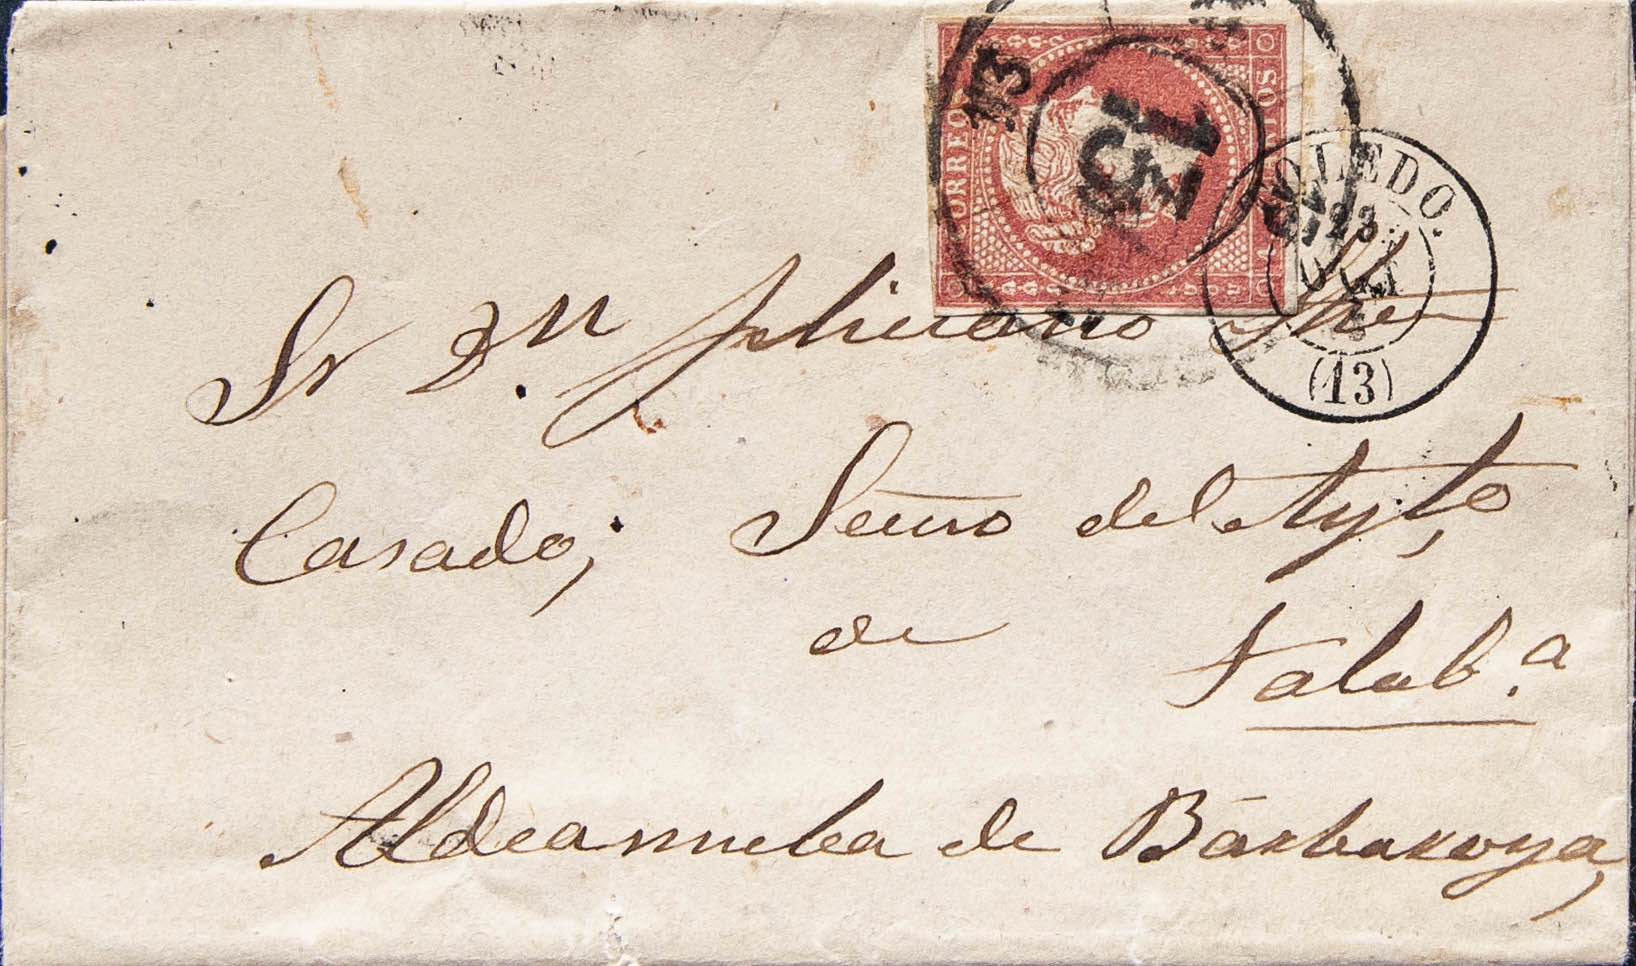 CORREOS
TOLEDO.
(13)
Sr Dn. Feliciano
Casado, Secrio del Aytto
de Talab.a
Aldeanueba de Bárbarroya,